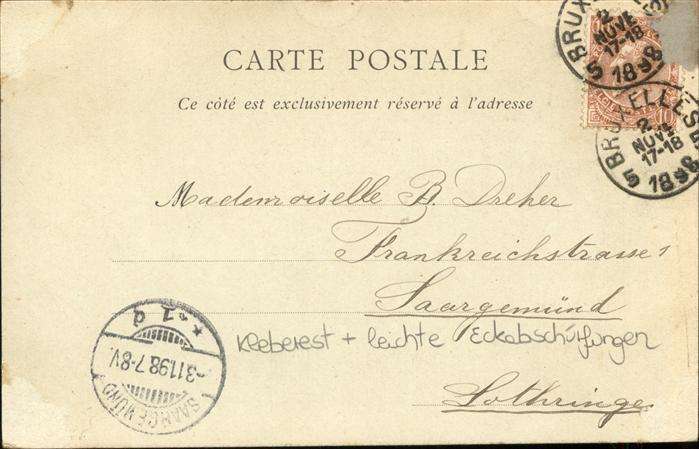 CARTE POSTALE
Ce côté est exclusivement réservé à l'adresse
BRUXELLES 5
2 NOVE 17-18 1898
BRUXELLES 5
2 NOVE 17-18 1898
10
Mademoiselle B. Dreher
Frankreichstrasse 1
Saargemünd
Kleberest + leichte Eckabschürfungen
Lothringe
SAARGEMÜND
-3.11.98.7-8V.